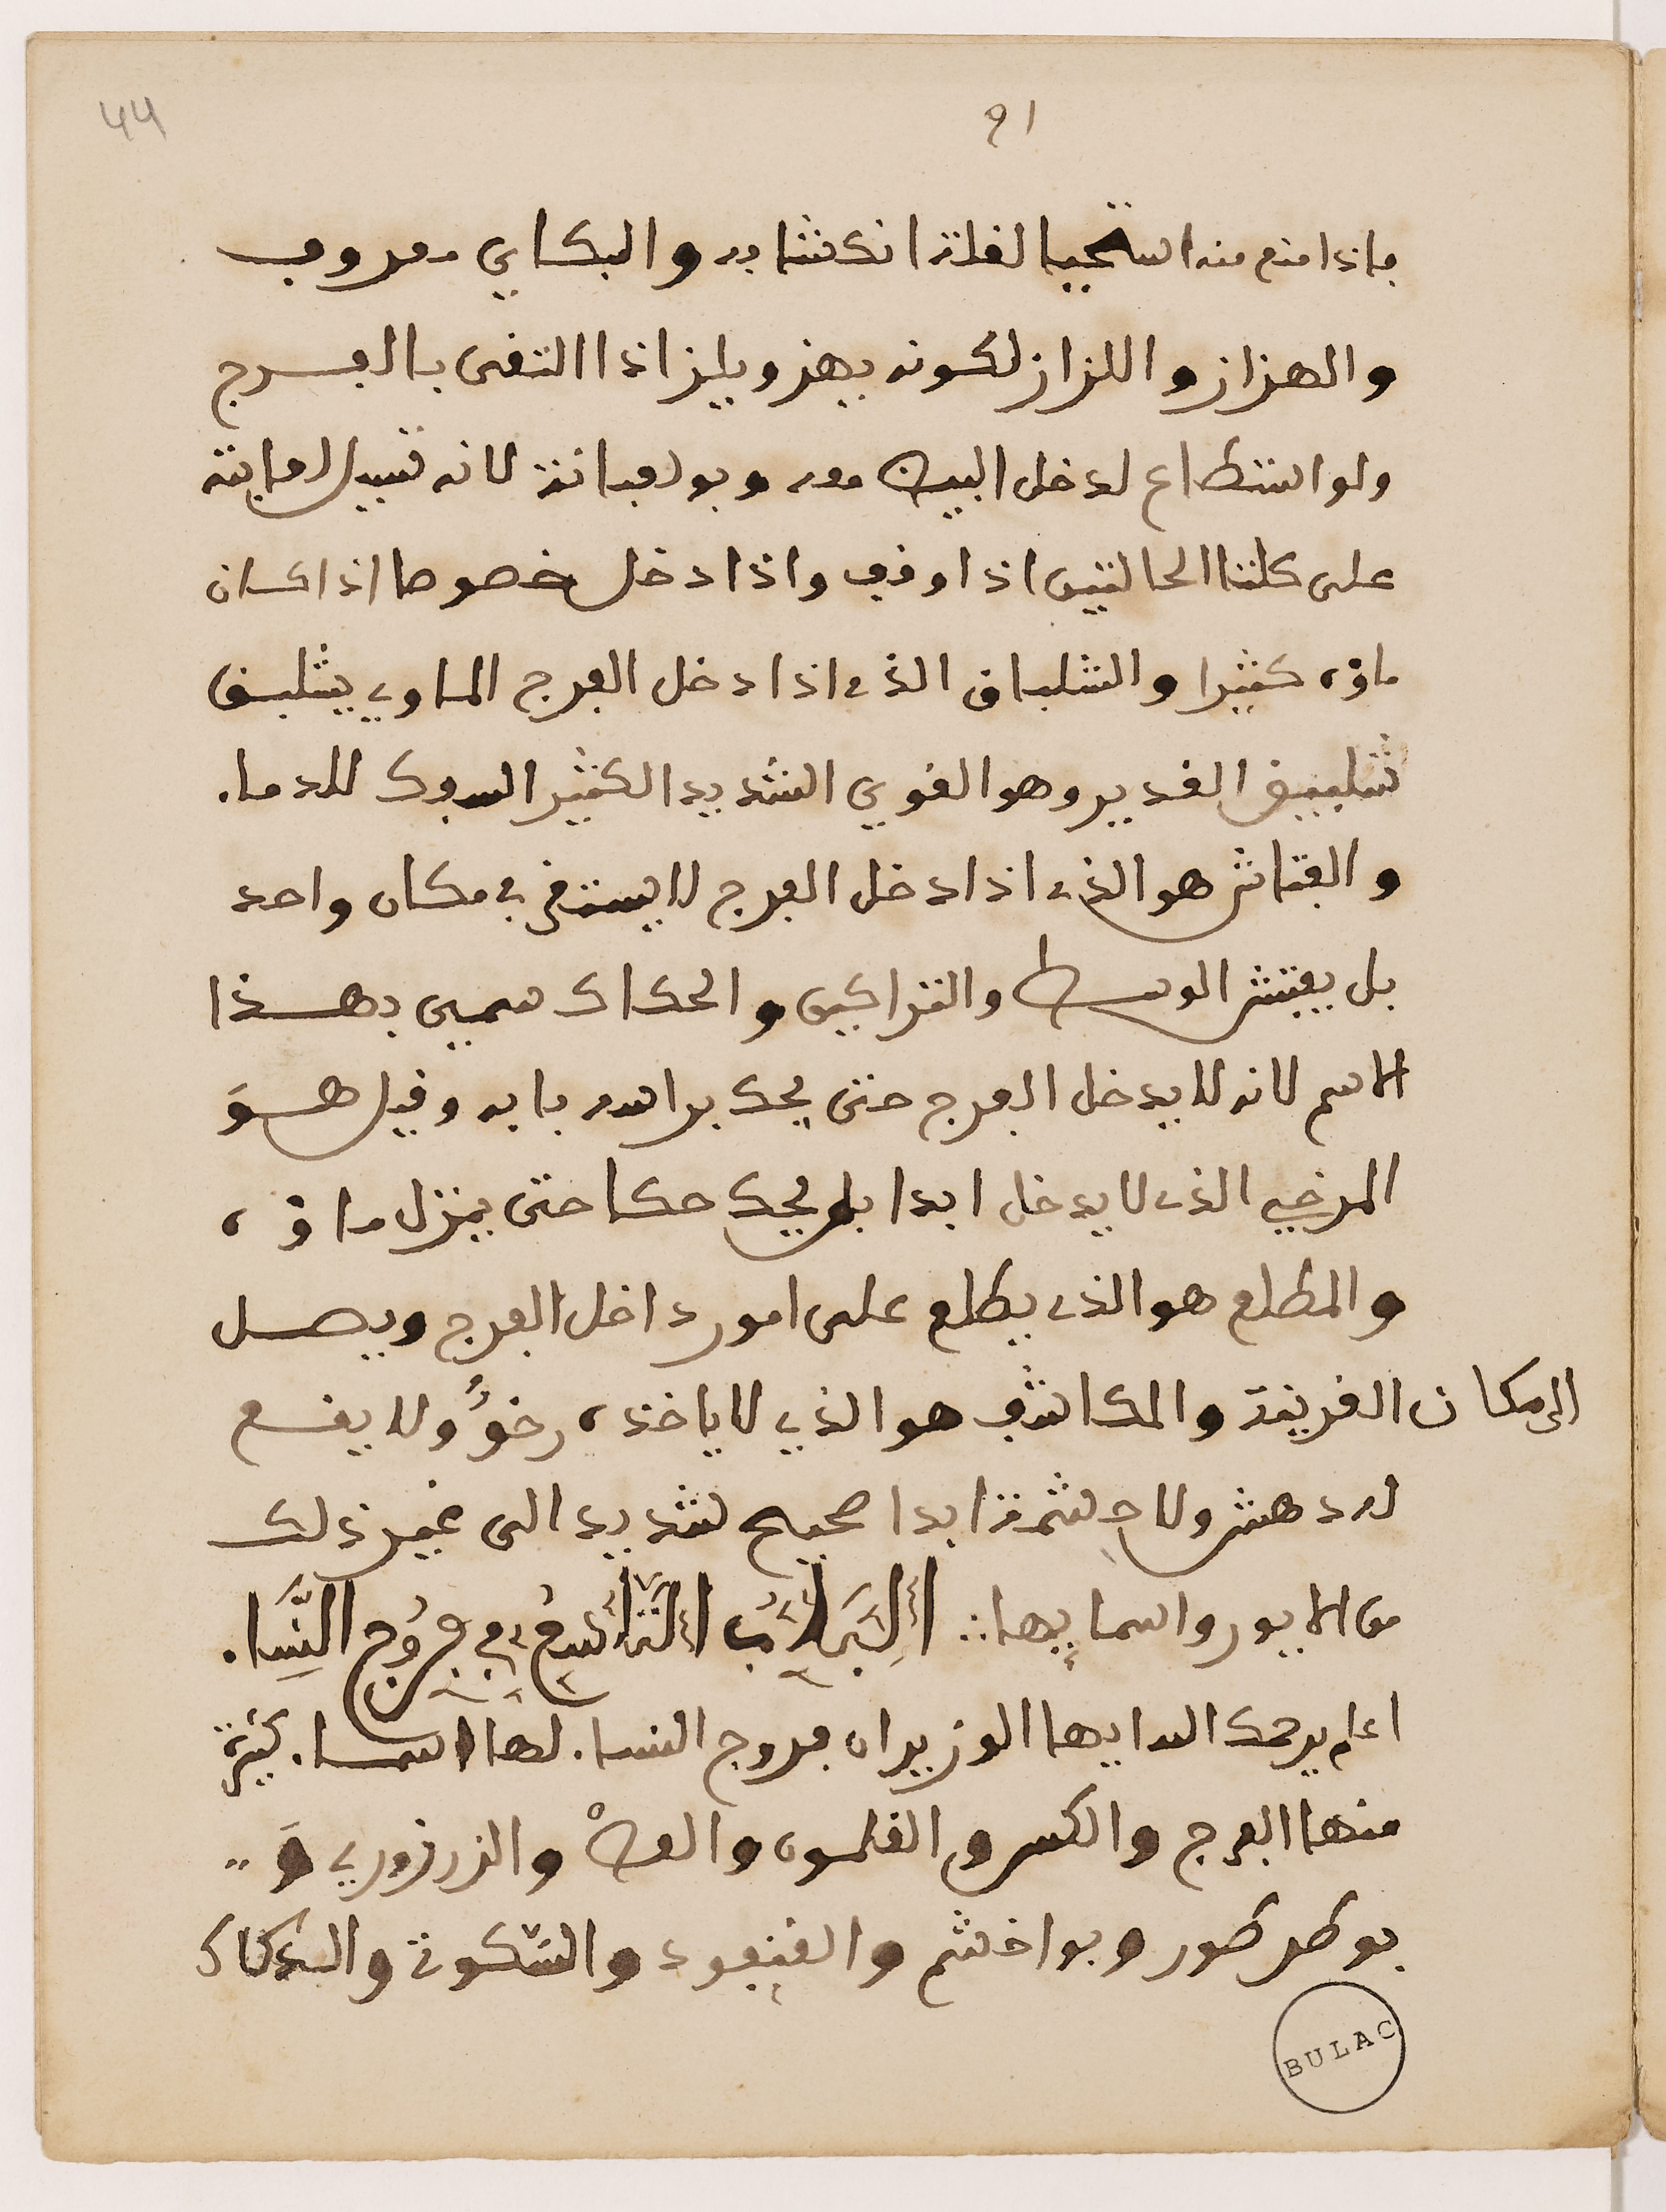 44
91
فاذا منع منه استحيا لقلة انكشابه والبكاي معروف
والهزاز واللزاز لكونه يهز ويلز اذا التقى بالفرج
ولو استطاع لدخل البيض معه وبولعبانة لانه قبيل لعابته
على كلتا الحالتين اذا وقف واذا دخل خصوصا اذا كان
ماؤه كثيرا والشلباق الذي اذا دخل الفرج الماوي يشلبق
تشلبيق الغدير وهو القوي الشديد الكثير السفوك للدما.
والفتاش هو الذي اذا دخل الفرج لا يستقر في مكان واحد
بل يفتش الوسط والتراكين والحكاك سمي بهذا
الاسم لانه لا يدخل الفرج حتى يحك براسه بابه وقيل هو
المرخي الذي لا يدخل ابدا بل يحك حكا حتى ينزل ماؤه
والمطلع هو الذي يطلع على امور داخل الفرج ويصل
الى مكان الغريبة والمكاشف هو الذي لا ياخذه رخو ولا يقع
له دهش ولا حشمة ابدا صحيح شديد الى غير ذلك
من الايور واسمايها ∴ اَلْبَابُ التَّاسِعُ فِي فُرُوجِ النِّسَا.
اعلم يرحمك الله ايها الوزير ان فروج النسا. لها اسما. كثيرة
منها الفرج والكس والغلمون والعص والزرزوري و
بوطرطور وبواخشم والقنفود والسكوتي والدكاك
BULAC